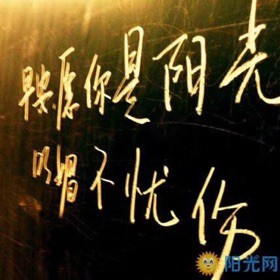 早安愿你是阳光
明媚不忧伤
阳光网